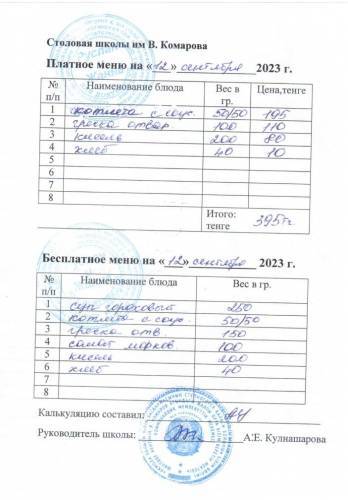 Столовая школы им В. Комарова
Платное меню на «12» сентября 2023 г.
№ п/п Наименование блюда Вес в гр. Цена,тенге
1 котлета с соус 50/50 195
2 гречка отвар 100 110
3 кисель 200 80
4 хлеб 40 10
5
6
7
8
Итого: тенге 395тг
Бесплатное меню на «12» сентября 2023 г.
№ п/п Наименование блюда Вес в гр.
1 суп гороховый 250
2 котлета с соус 50/50
3 гречка отв 150
4 салат морков 100
5 кисель 200
6 хлеб 40
7
8
Калькуляцию составил:
Руководитель школы: А.Е. Кулнашарова